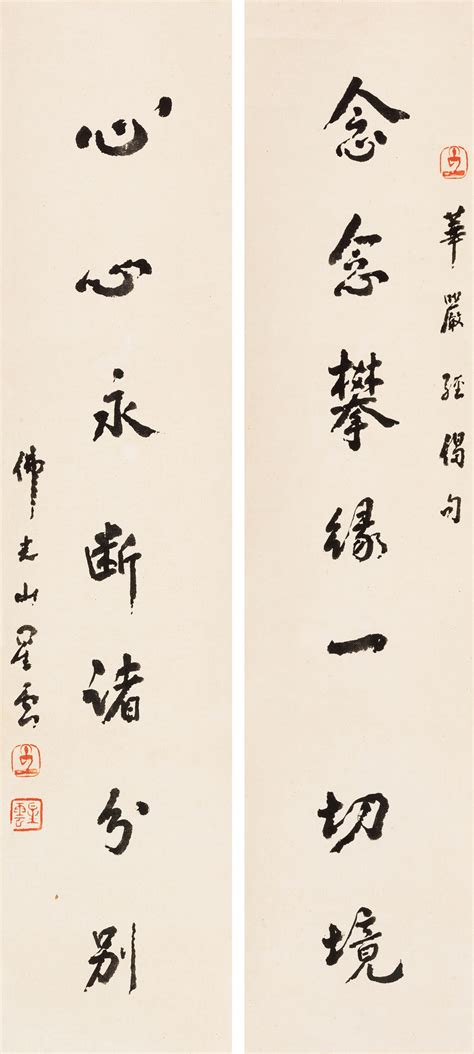 華嚴經偈句
念念攀緣一切境
心心永斷諸分別
佛光山星雲
星雲